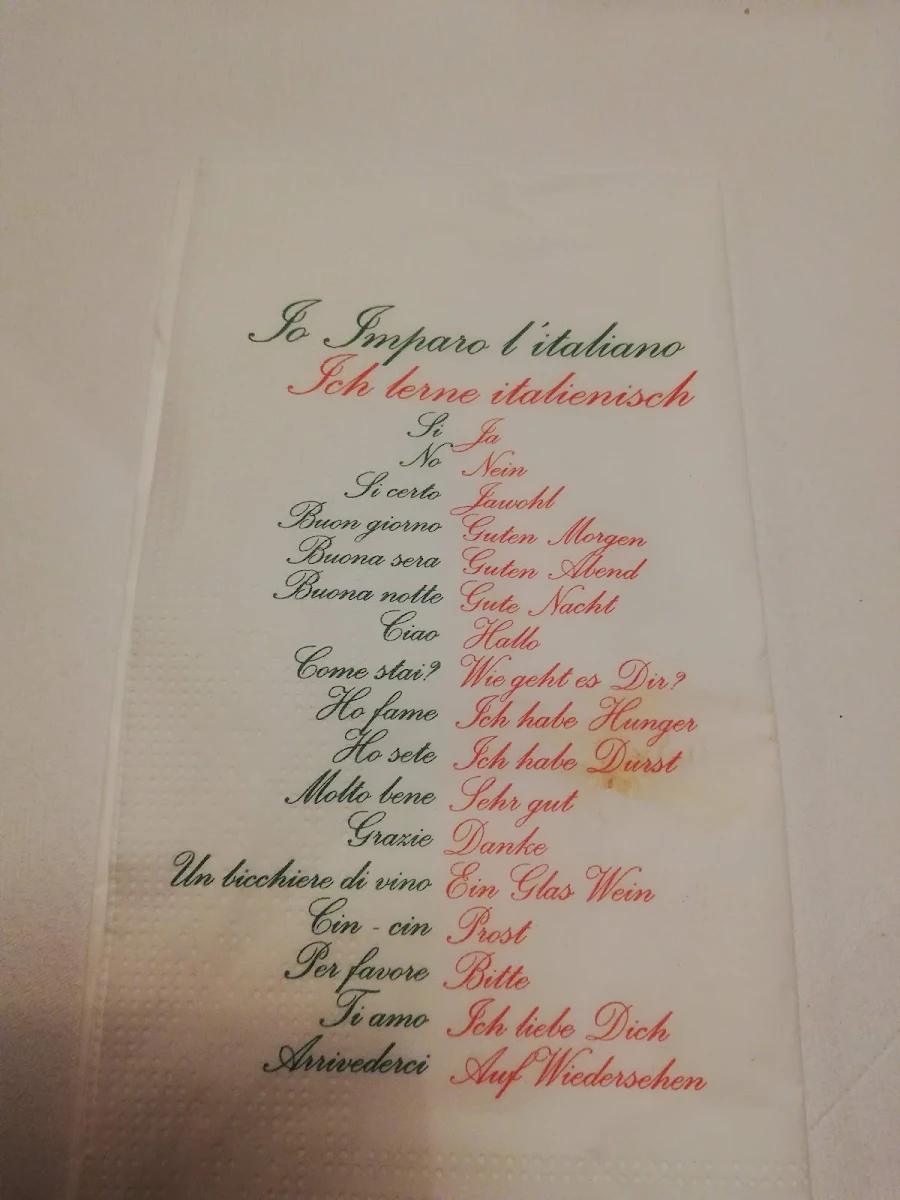 Io Imparo l'italiano
Ich lerne italienisch
Si Ja
No Nein
Si certo Jawohl
Buon giorno Guten Morgen
Buona sera Guten Abend
Buona notte Gute Nacht
Ciao Hallo
Come stai? Wie geht es Dir?
Ho fame Ich habe Hunger
Ho sete Ich habe Durst
Molto bene Sehr gut
Grazie Danke
Un bicchiere di vino Ein Glas Wein
Cin - cin Prost
Per favore Bitte
Ti amo Ich liebe Dich
Arrivederci Auf Wiedersehen